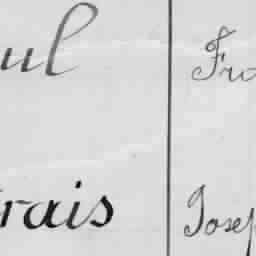 ul Fra
rais Josep